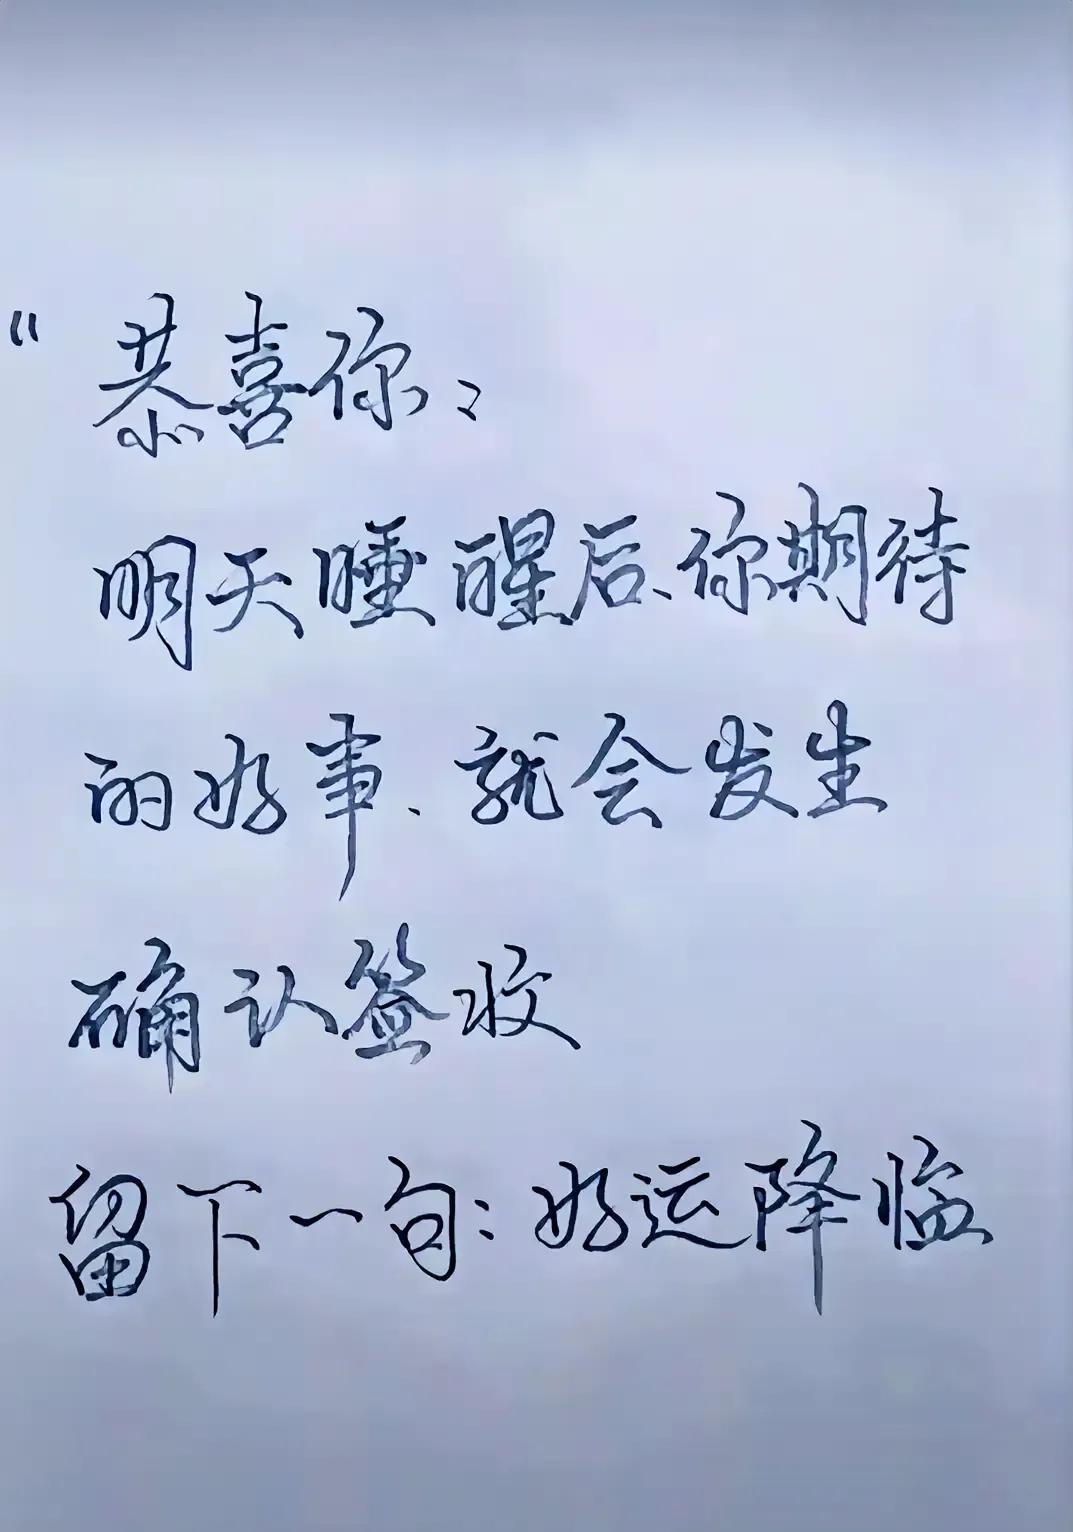 “恭喜你：
明天睡醒后、你期待
的好事、就会发生
确认签收
留下一句：好运降临